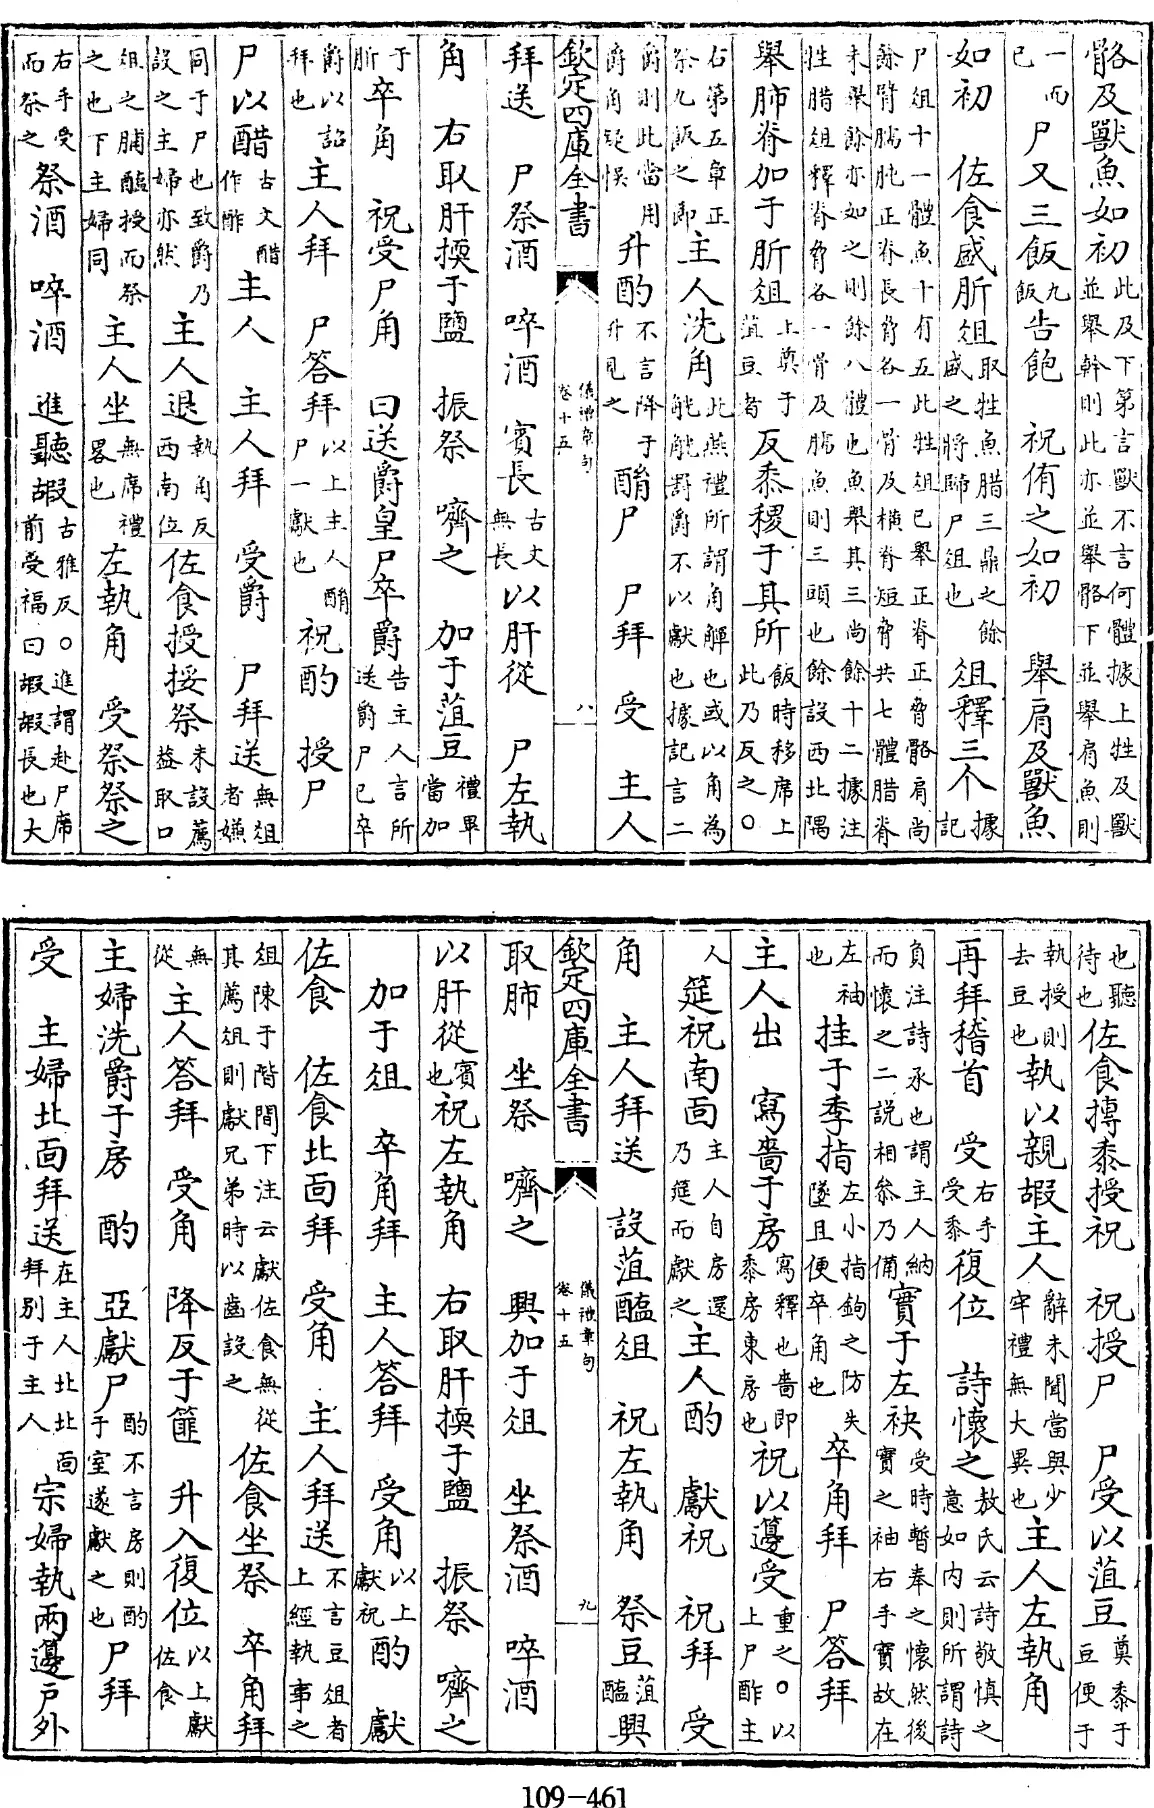 骼及獸魚如初此及下第言獸不言何體據上牲及獸
並舉幹則此亦並舉骼下並舉肩魚則
一而
已尸又三飯九
飯告飽　祝侑之如初　舉肩及獸魚
如初　佐食盛肵俎取牲魚腊三鼎之餘
盛之將歸尸俎也　俎釋三个據
記
尸俎十一體魚十有五此牲俎已舉正脊正脅骼肩尚
餘臂臑肫正脊長脅各一骨及橫脊短脅共七體腊脊
未舉餘亦如之則餘八體也魚舉其三尚餘十二據注
牲腊俎釋脊脅各一骨及臑魚則三頭也餘設西北隅
舉肺脊加于肵俎上奠于
葅豆者反黍稷于其所飯時移席上
此乃反之〇
右第五章正
祭九飯之即主人洗角此燕禮所謂角觶也或以角為
觥觥罰爵不以獻也據記言二
爵則此當用
爵角疑悞升酌不言降于
升見之酳尸　尸拜　受　主人
欽定四庫全書　儀禮章句
卷十五　八
拜送　尸祭酒　啐酒　賓長古文
無長以肝從　尸左執
角　右取肝擩于鹽　振祭　嚌之　加于葅豆禮畢
當加
于
肵卒角　祝受尸角　曰送爵皇尸卒爵告主人言所
送爵尸已卒
爵以詔
拜也主人拜　尸答拜以上主人酳
尸一獻也　祝酌　授尸
尸以醋古文醋
作酢主人　主人拜　受爵　尸拜送無俎
者嫌
同于尸也致爵乃
設之主婦亦然主人退執角反
西南位佐食授挼祭未設薦
益取口
俎之脯醢授而祭
之也下主婦同主人坐無席禮
畧也左執角　受祭祭之
右手受
而祭之祭酒　啐酒　進聽嘏古雅反〇進謂赴尸席
前受福曰嘏嘏長也大
也聽
待也佐食摶黍授祝　祝授尸　尸受以葅豆奠黍于
豆便于
執授則
去豆也執以親嘏主人辭未聞當與少
牢禮無大異也主人左執角
再拜稽首　受右手
受黍復位　詩懷之敖氏云詩敬慎之
意如內則所謂詩
負注詩承也謂主人納
而懷之二説相叅乃備實于左袂受時暫奉之懷然後
實之袖右手實故在
左袖
也挂于季指左小指鉤之防失
墜且便卒角也　卒角拜　尸答拜
主人出　寫嗇于房寫釋也嗇即
黍房東房也祝以籩受重之〇以
上尸酢主
人　筵祝南面主人自房還
乃筵而獻之主人酌　獻祝　祝拜　受
角　主人拜送　設葅醢俎　祝左執角　祭豆葅
醢興
欽定四庫全書　儀禮章句
卷十五　九
取肺　坐祭　嚌之　興加于俎　坐祭酒　啐酒
以肝從賓
也祝左執角　右取肝擩于鹽　振祭　嚌之
加于俎　卒角拜　主人答拜　受角以上
獻祝酌　獻
佐食　佐食北面拜　受角　主人拜送不言豆俎者
上經執事之
俎陳于階間下注云獻佐食無從
其薦俎則獻兄弟時以齒設之佐食坐祭　卒角拜
無
從主人答拜　受角　降反于篚　升入復位以上獻
佐食
主婦洗爵于房　酌　亞獻尸酌不言房則酌
于室遂獻之也尸拜
受　主婦北面拜送在主人北北面
拜別于主人　宗婦執兩籩戶外
109-461